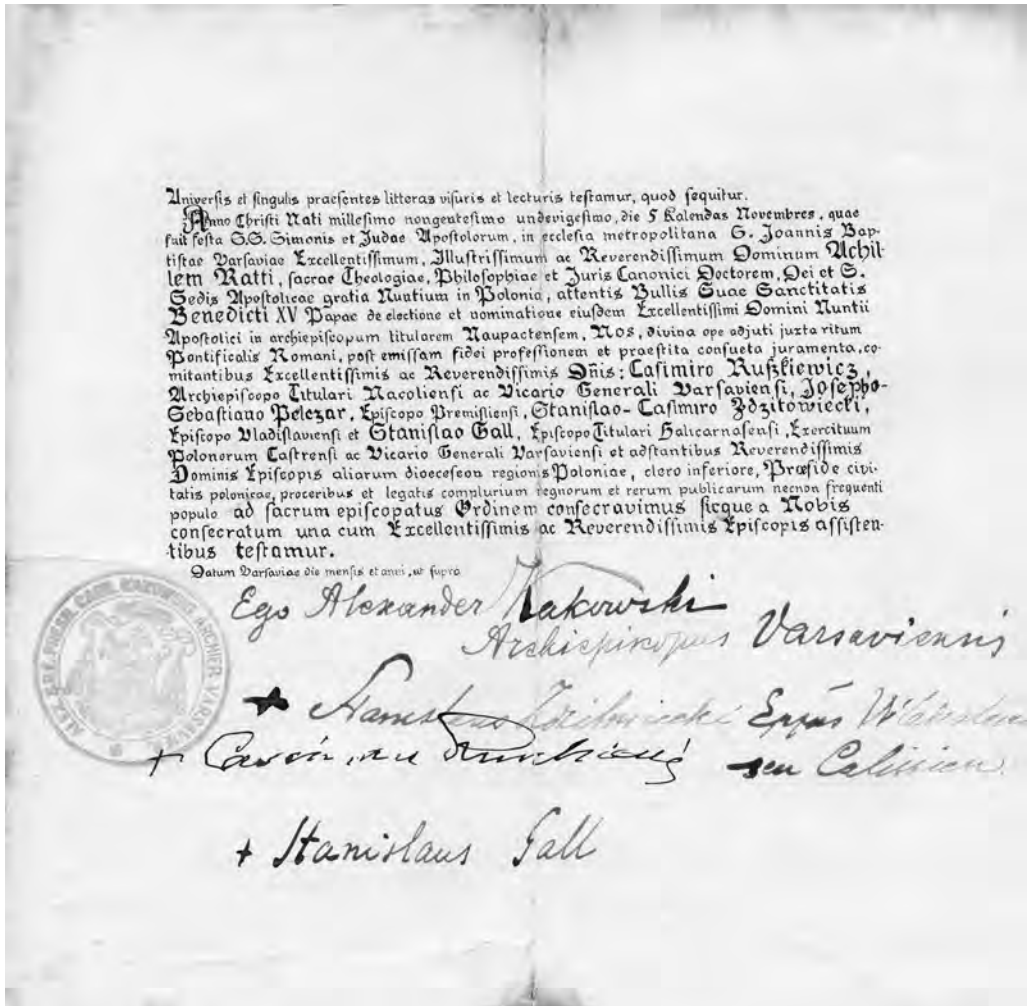 Universis et singulis praesentes litteras visuris et lecturis testamur, quod sequitur.
Anno Christi Nati millesimo nongentesimo undevigesimo, die 5 Kalendas Novembres, quae
fuit festa S.S. Simonis et Judae Apostolorum, in ecclesia metropolitana S. Joannis Bap-
tistae Varsaviae Excellentissimum, Illustrissimum ac Reverendissimum Dominum Achil-
lem Ratti, sacrae Theologiae, Philosophiae et Juris Canonici Doctorem, Dei et S.
Sedis Apostolicae gratia Nuntium in Polonia, attentis Bullis Suae Sanctitatis
Benedicti XV Papae de electione et nominatione eiusdem Excellentissimi Domini Nuntii
Apostolici in archiepiscopum titularem Naupactensem, Nos, divina ope adjuti juxta ritum
Pontificalis Romani, post emissam fidei professionem et praestita consueta juramenta, co-
mitantibus Excellentissimis ac Reverendissimis Dñis: Casimiro Ruszkiewicz,
Archiepiscopo Titulari Nacoliensi ac Vicario Generali Varsaviensi, Josepho-
Sebastiano Pelczar, Episcopo Premisliensi, Stanislao-Casimiro Zdzitowiecki,
Episcopo Vladislaviensi et Stanislao Gall, Episcopo Titulari Halicarnasensi, Exercituum
Polonorum Castrensi ac Vicario Generali Varsaviensi et adstantibus Reverendissimis
Dominis Episcopis aliarum dioeceseon regionis Poloniae, clero inferiore, Praeside civi-
tatis polonicae, proceribus et legatis complurium regnorum et rerum publicarum necnon frequenti
populo ad sacrum episcopatus Ordinem consecravimus sicque a Nobis
consecratum una cum Excellentissimis ac Reverendissimis Episcopis assisten-
tibus testamur.
Datum Varsaviae die mensis et anni, ut supra
Ego Alexander Kakowski
Archiepiscopus Varsaviensis
Stanislaus Zdzitowiecki Eppus
seu Calissien.
+ Stanislaus Gall